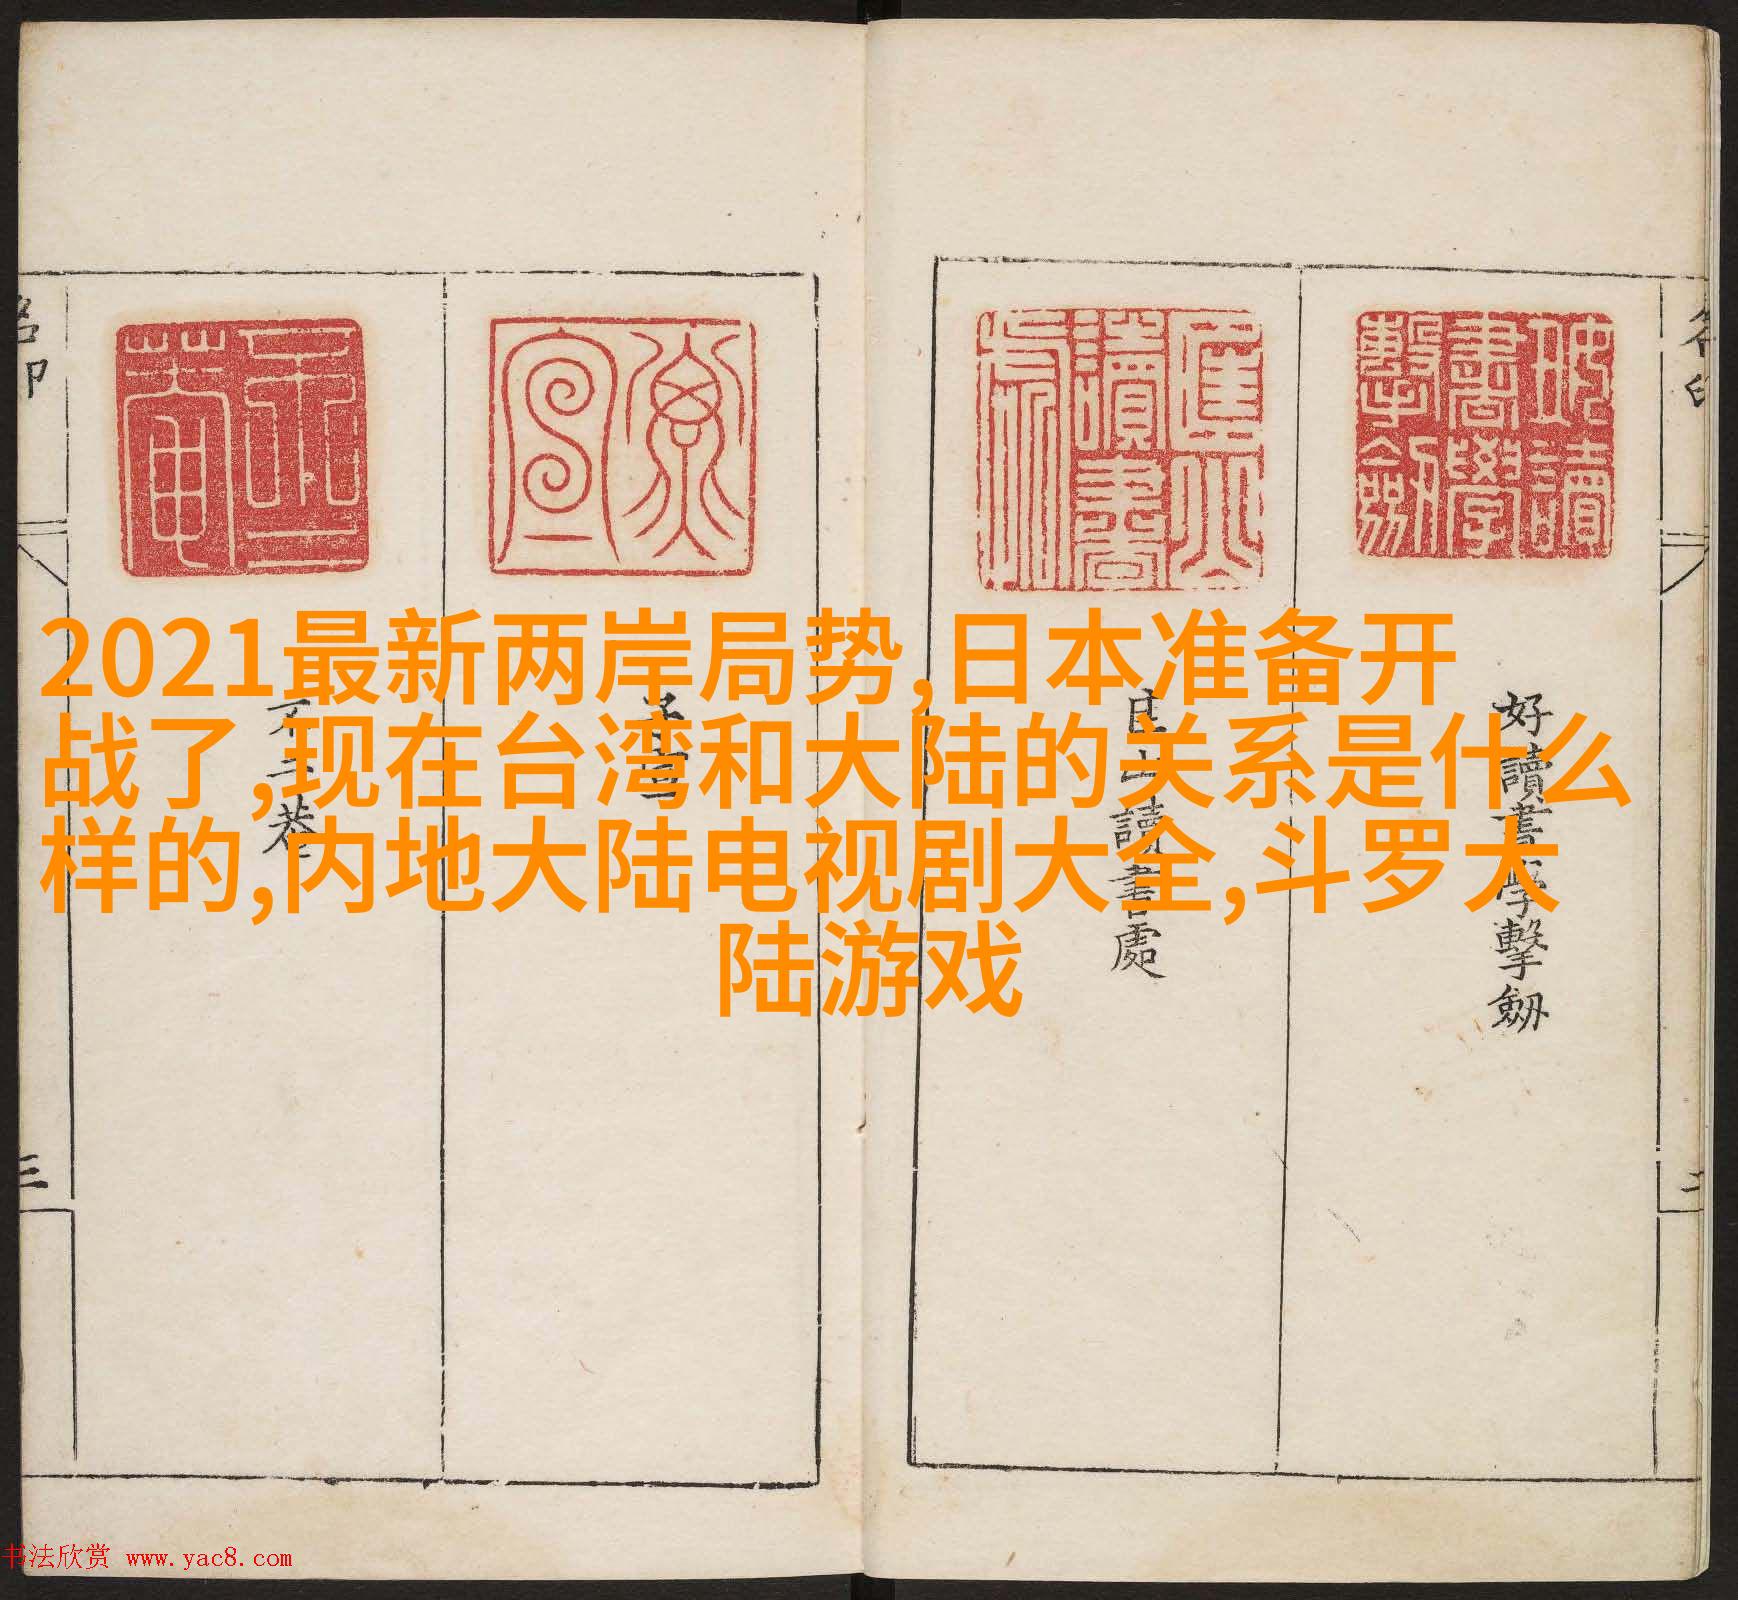 2021最新两岸局势,日本准备开
战了,现在台湾和大陆的关系是什么
样的,内地大陆电视剧大全,斗罗大
陆游戏
好讀書學擊劒
匡山讀書處
不二菴
三
书法欣赏 www.yac8.com